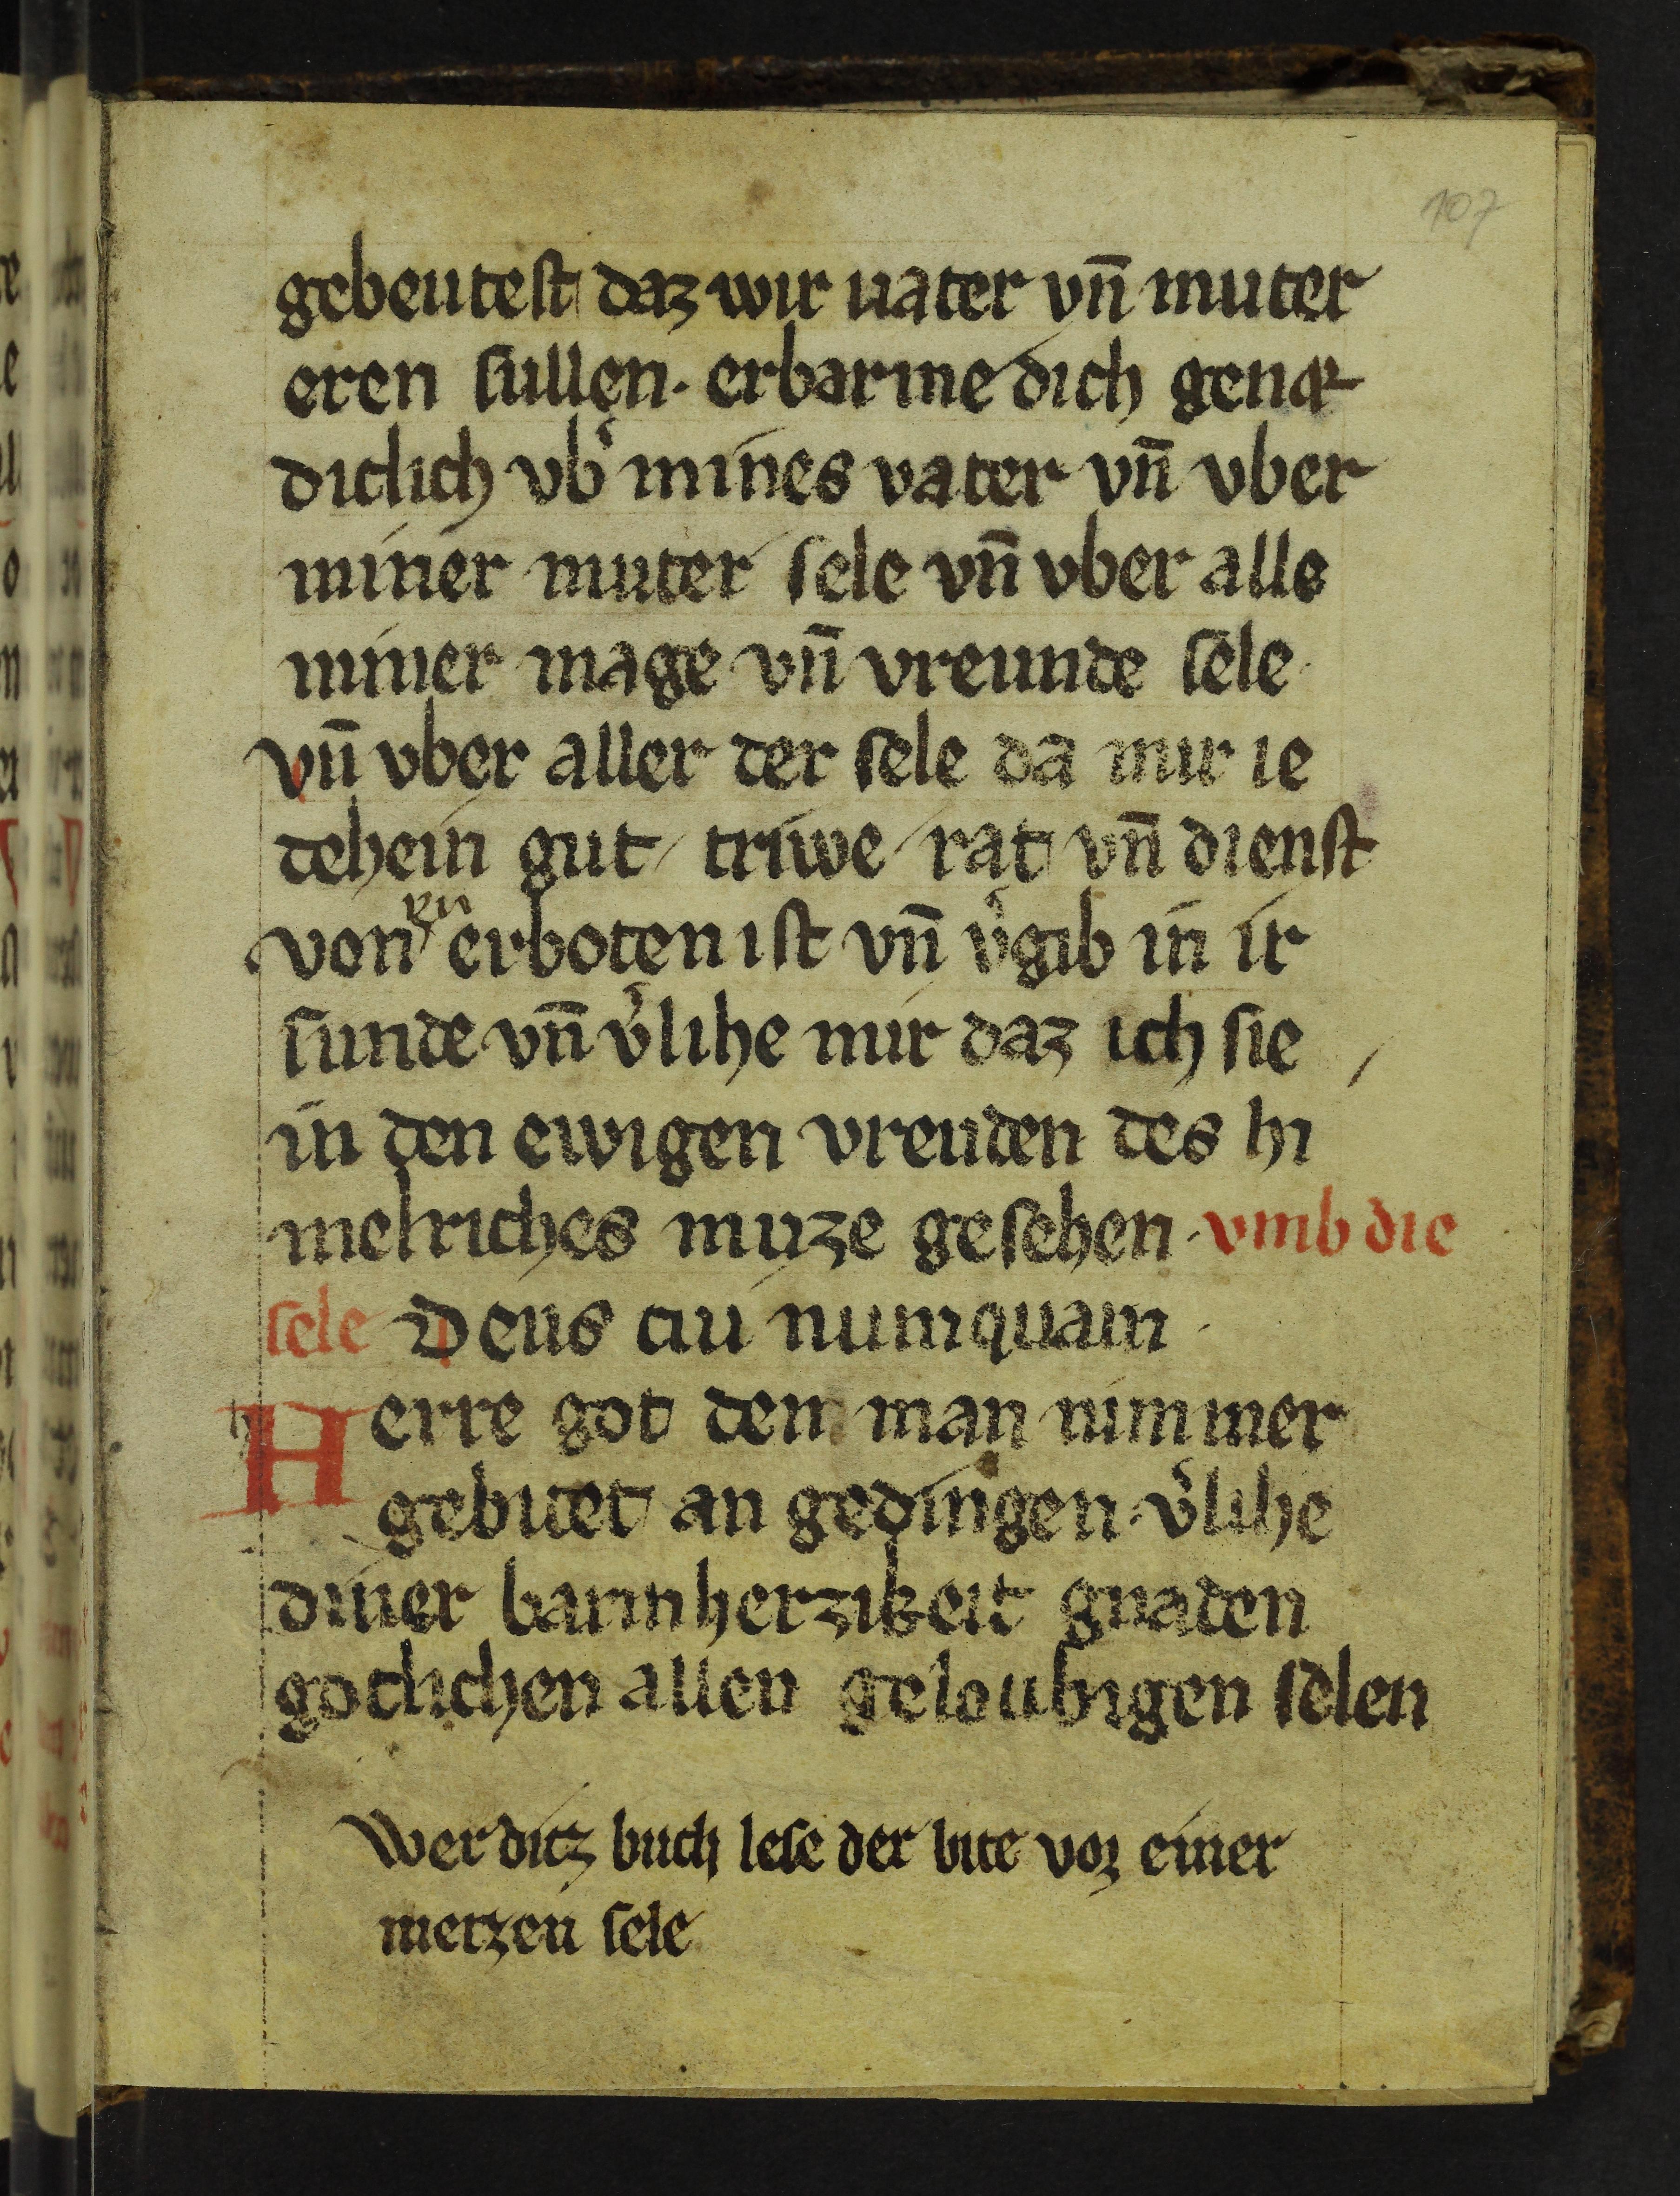 107
gebeutest daz wir uater vn̄ muter
eren sullen. erbarme dich gena
diclich vb᾽ mines vater vn̄ vber
miner muter sele vn̄ vber alle
miner mage vn̄ vreunde sele.
vn̄ vber aller der sele da mir ie
dehein gut / triwe / rat vn̄ dienst
von erboten ist vn̄ v᾽gib in ir
sunde vn̄ v᾽lihe mir daz ich sie
in den ewigen vreuden des hi
melriches muze gesehen. vmb die
sele Deus cui numquam.
Herre got den man nimmer
gebitet an gedingen. v᾽lihe
diner barmherzikeit gnaden
gotlichen allen geloubigen selen
Wer ditz buch lese der bite vor einer
merzen sele